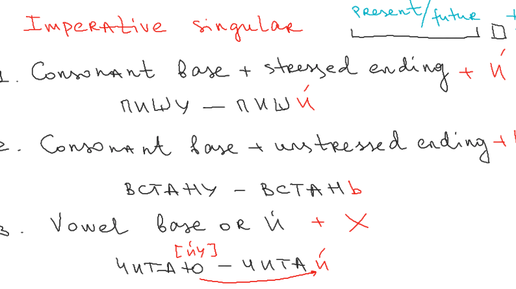 Imperative singular
present/future +
1. Consonant base + stressed ending + и́
пишу — пиши́
2. Consonant base + unstressed ending +
встану — встанЬ
3. Vowel base or й + X
[йу]
читаю — читай